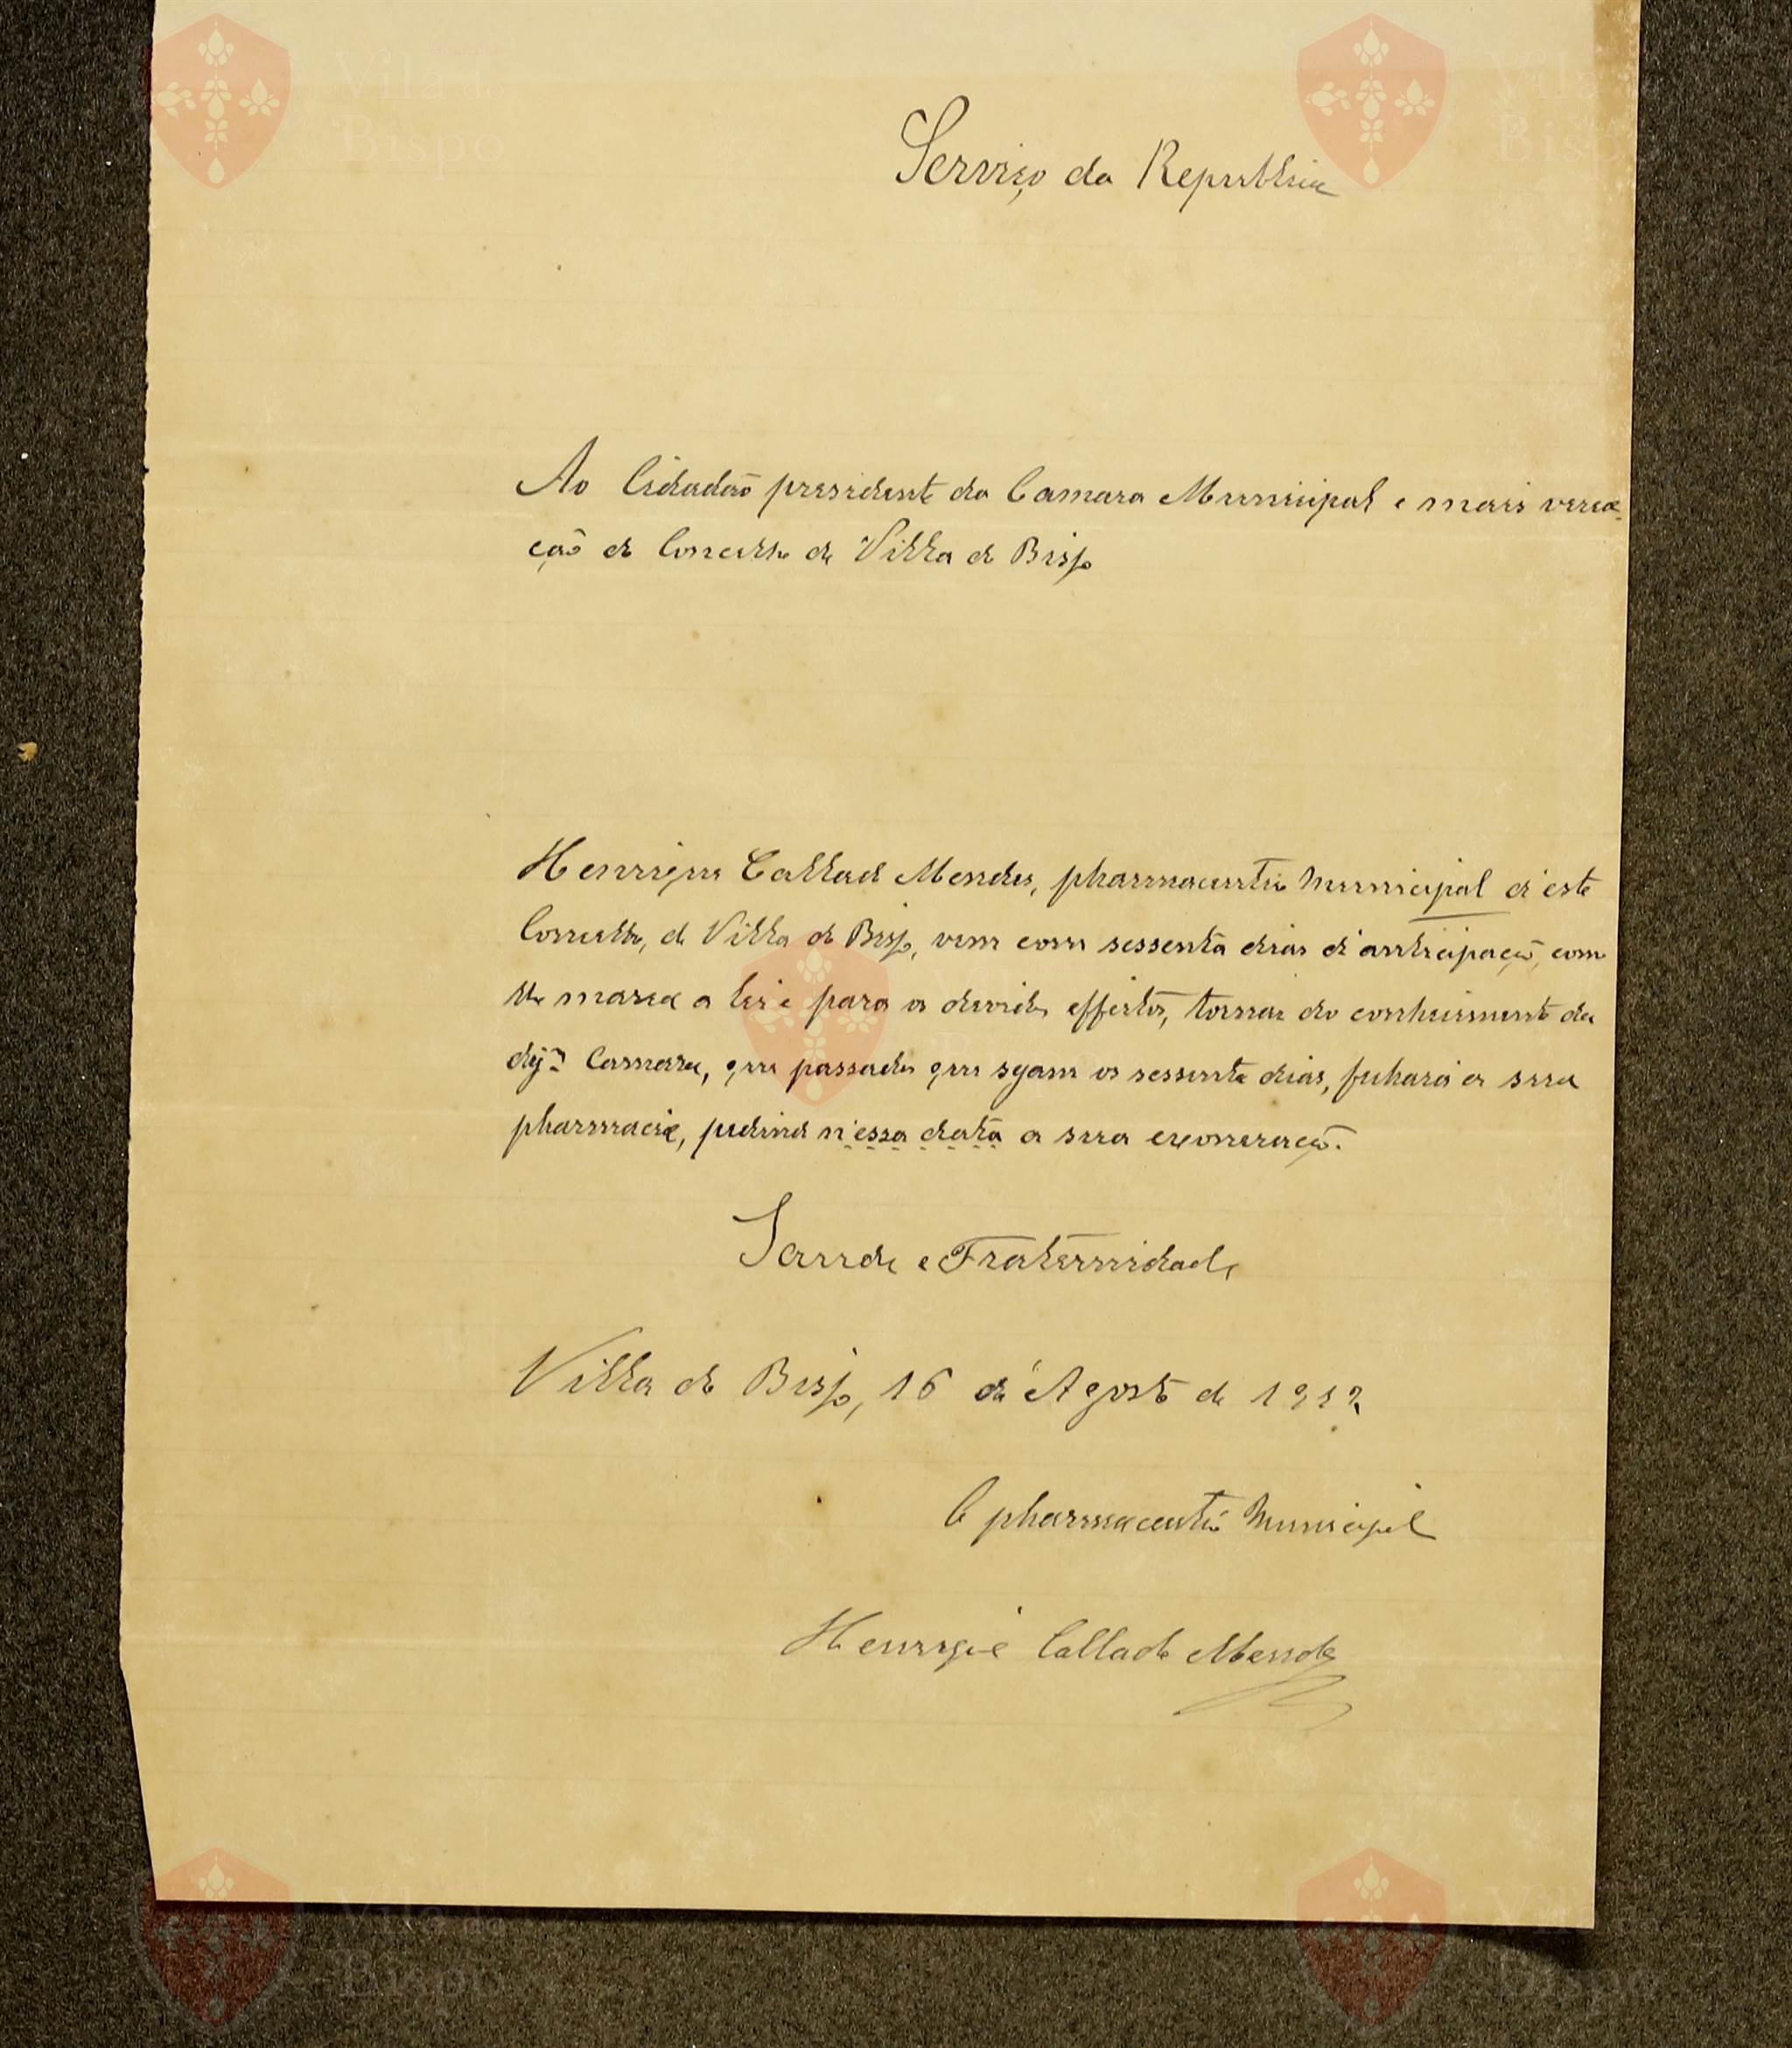 Serviço da Republica
Ao Cidadão presidente da Camara Municipal e mais verea-
ção do Concelho de Villa do Bispo
Henrique Callado Mendes, pharmaceutico Municipal d'este
Concelho, de Villa do Bispo, vem com sessenta dias d'anticipação, com
marca a lei e para os devidos effeitos, tornar do conhecimento da
dig.ma Camara, que passados que sejam os sessenta dias, fechará a sua
pharmacia, pedindo n'essa data a sua exoneração.
Saude e Fraternidade
Villa do Bispo, 16 de Agosto de 1912
O pharmaceutico Municipal
Henrique Callado Mendes
Vila do
Bispo